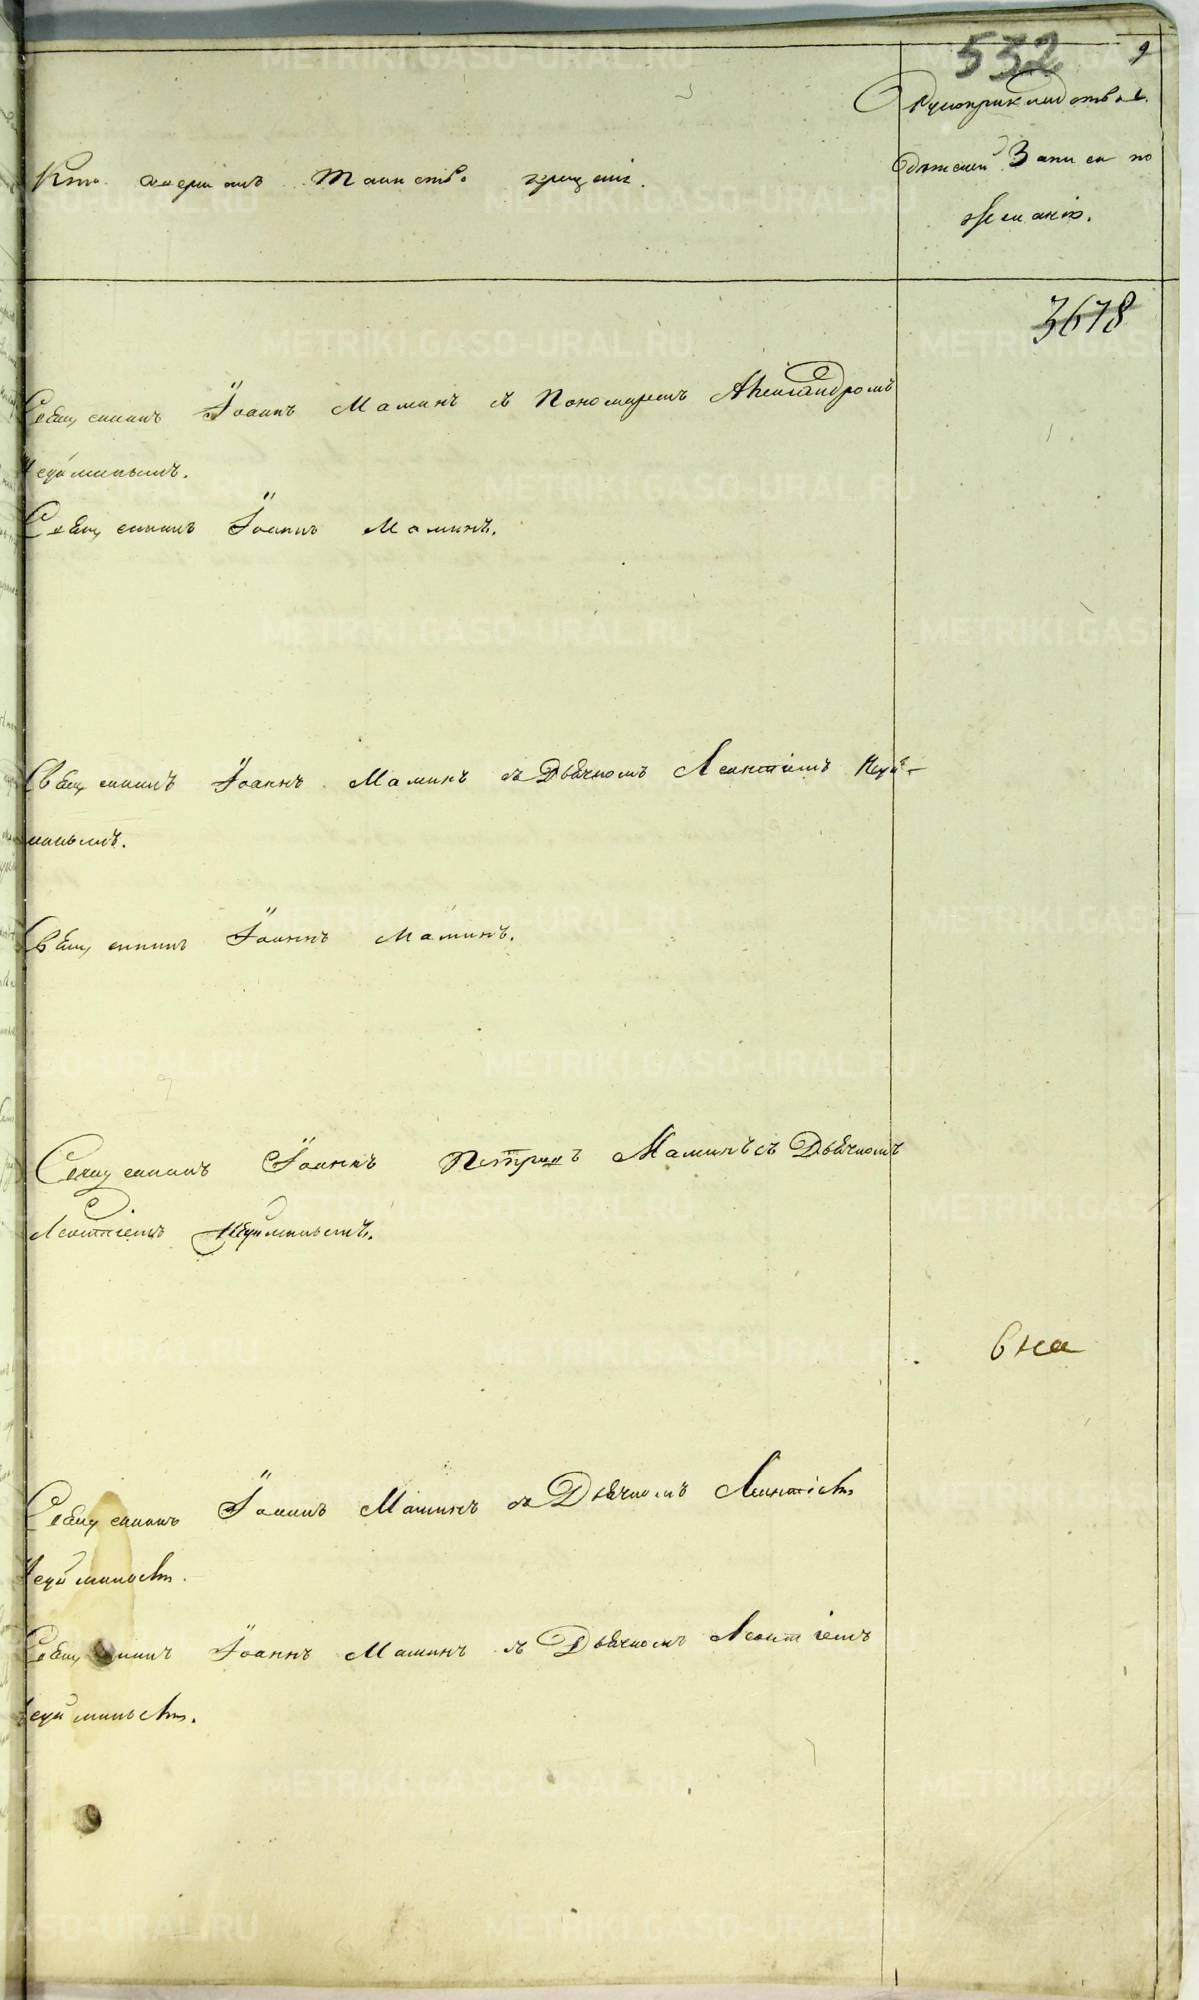 532 9
Рукоприкладство
Кто совершалъ таинство крещенія.
свѣтелей записи по
желанію.
3678
Священникъ Іоаннъ Маминъ съ Пономаремъ Александромъ
Удиминымъ.
Священникъ Іоаннъ Маминъ.
Священникъ Іоаннъ Маминъ съ Дьячкомъ Леонтіемъ
Священникъ Іоаннъ Маминъ.
Священникъ Іоаннъ Петровъ Маминъ съ Дьячкомъ
Леонтіемъ
Священникъ Іоаннъ Маминъ съ Дьячкомъ Леонтіемъ
Священникъ Іоаннъ Маминъ съ Дьячкомъ Леонтіемъ
METRIKI.GASO-URAL.RU